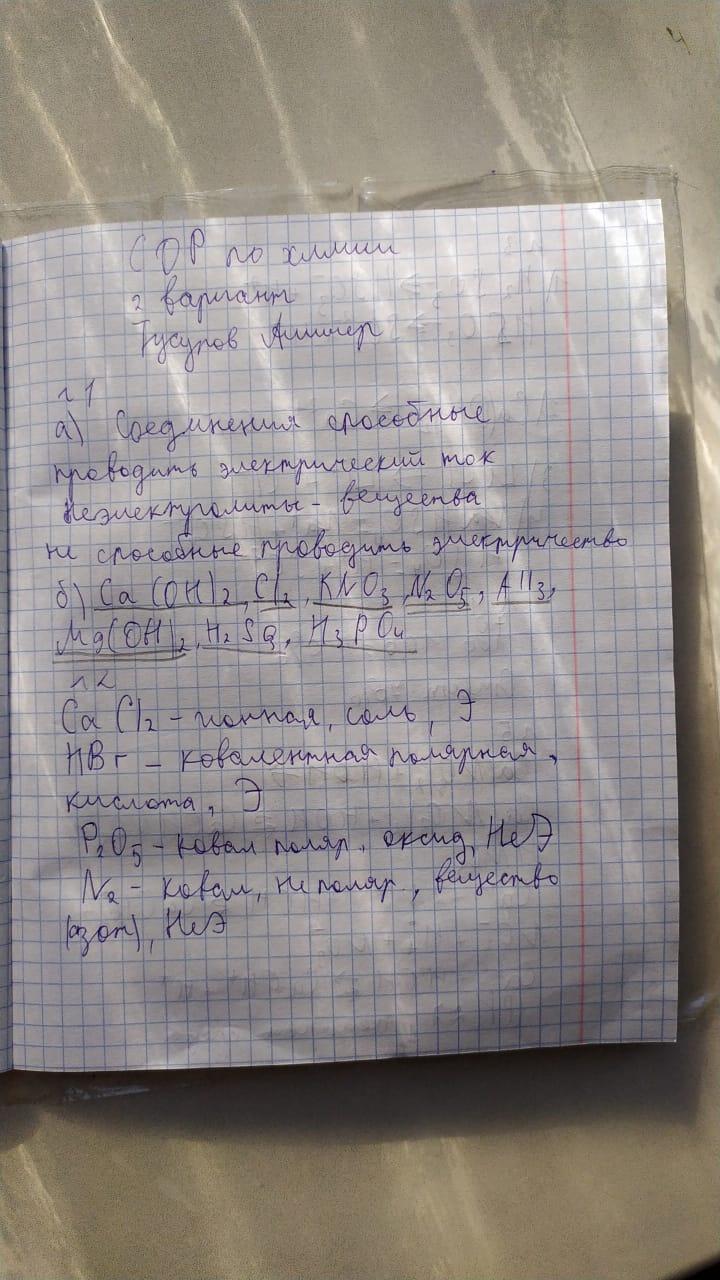 СОР по химии
2 вариант
Тусупов Алишер
№1
а) Соединения способные
проводить электрический ток
Неэлектролиты - вещества
не способные проводить электричество
б) Ca(OH)2, Cl2, KNO3, N2O5,
Mg(OH)2, H3PO4
№2
CaCl2 - ионная, соль, Э
HBr - ковалентная полярная,
кислота, Э
P2O5 - ковал поляр. оксид, НеЭ
N2 - ковал, не поляр, вещество
(азот), НеЭ